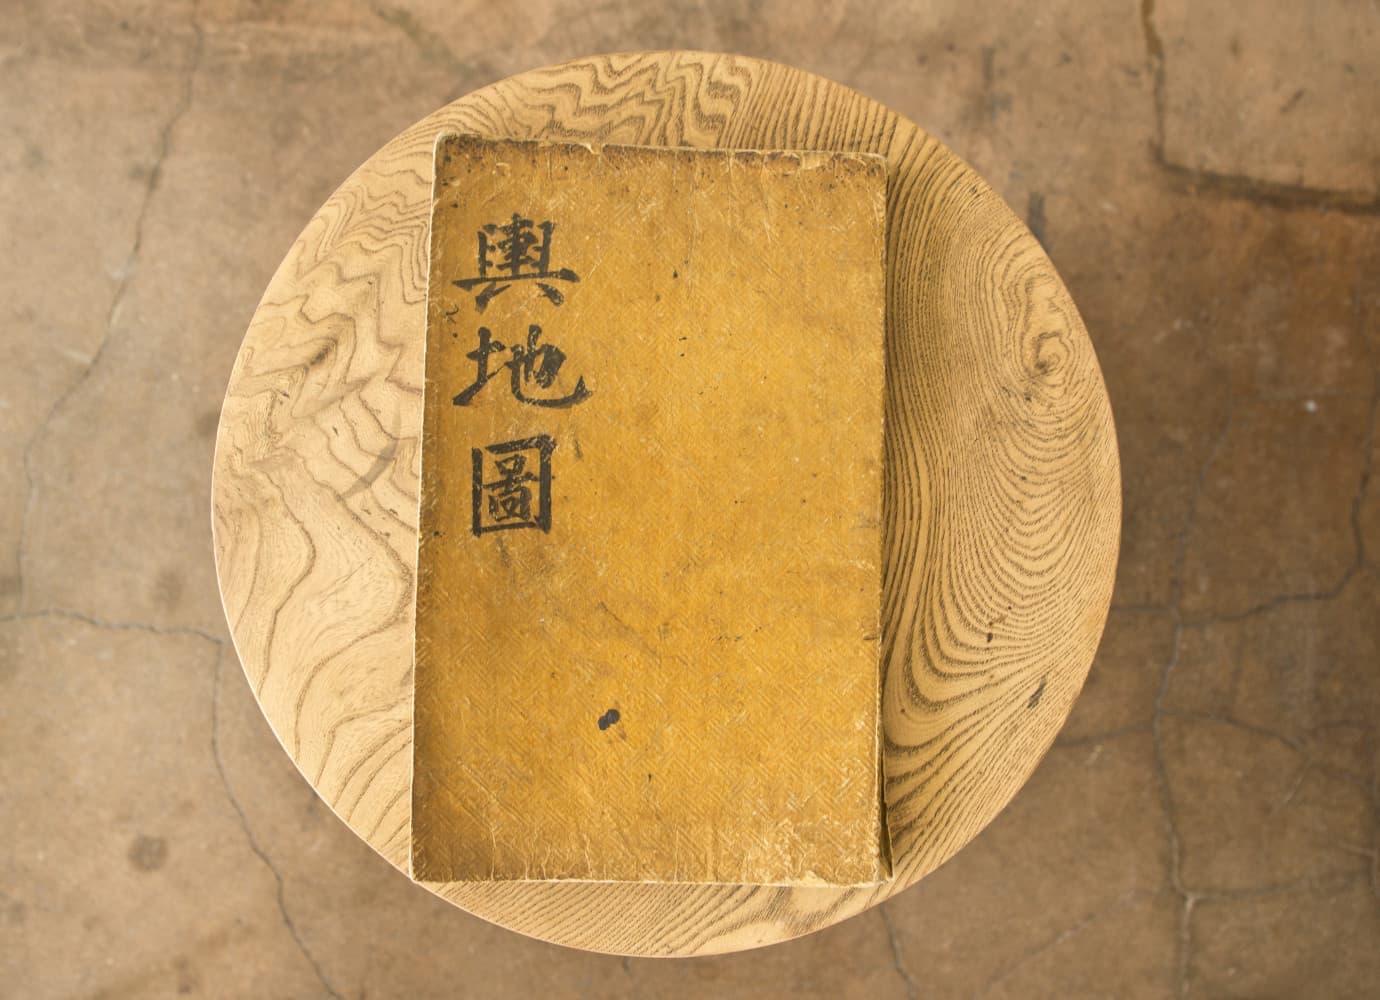 輿地圖